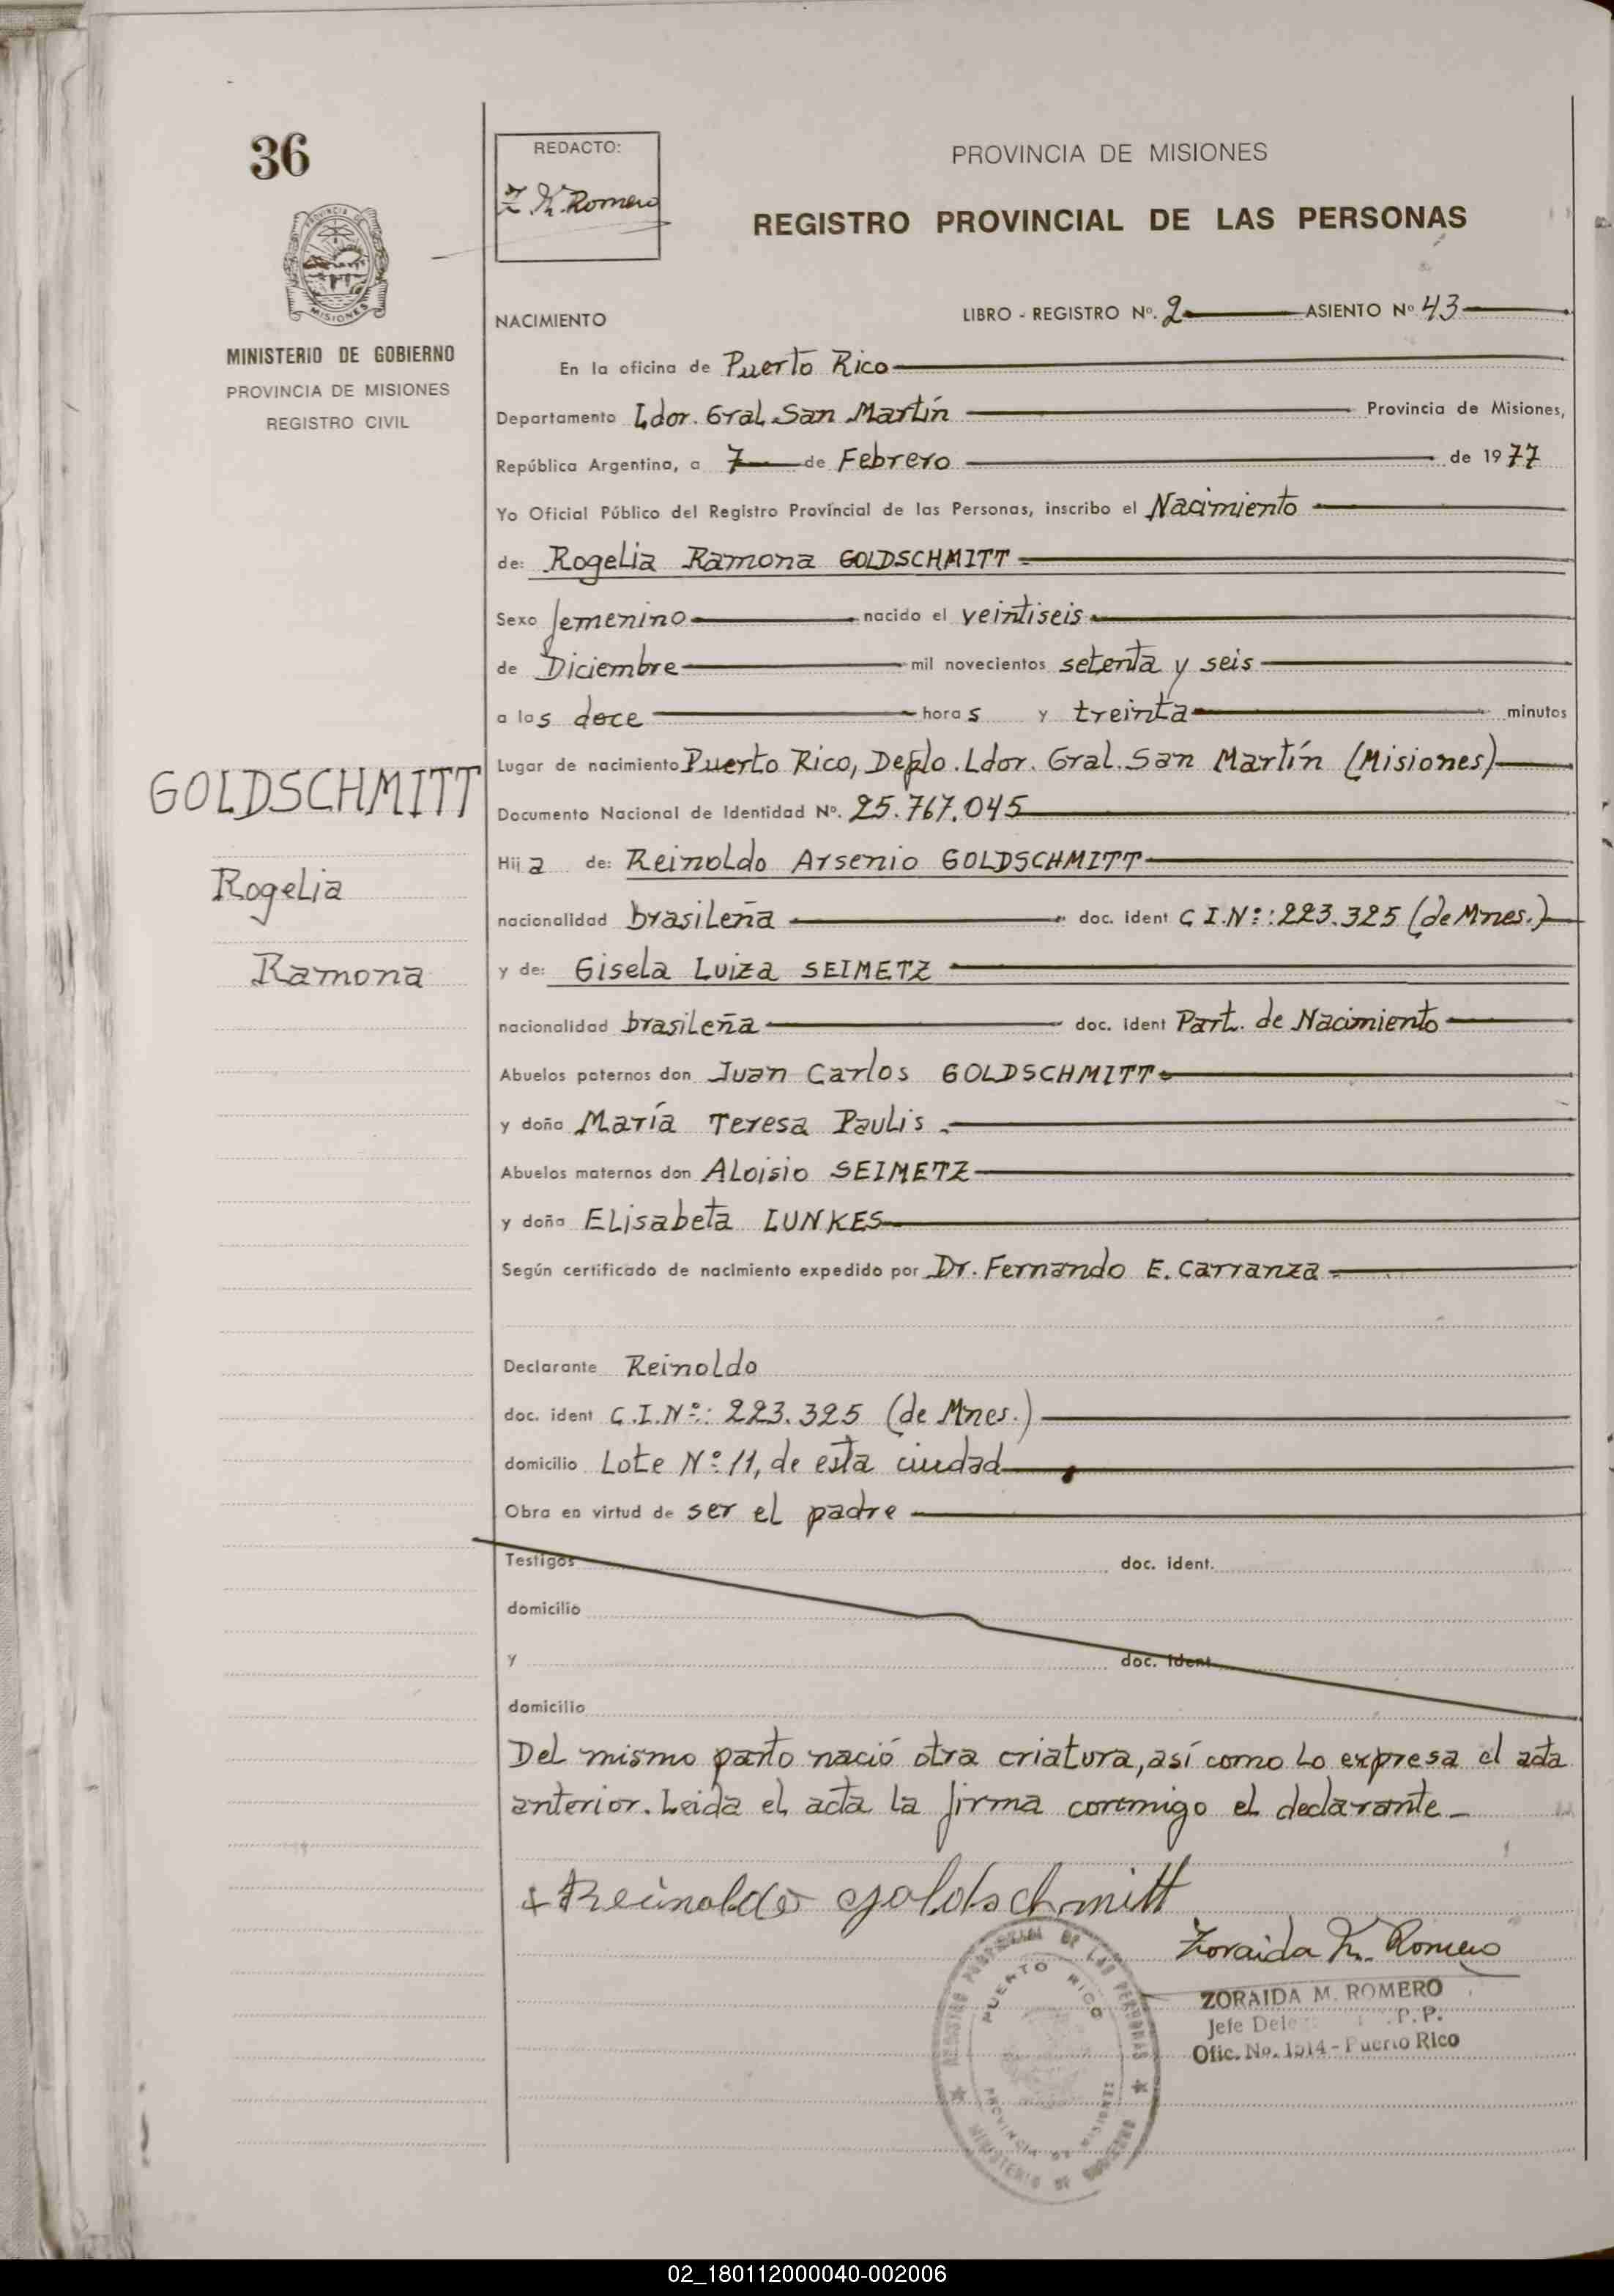 36
REDACTO:
Z M. Romero
PROVINCIA DE MISIONES
REGISTRO PROVINCIAL DE LAS PERSONAS
PROVINCIA DE
MISIONES
MINISTERIO DE GOBIERNO
PROVINCIA DE MISIONES
REGISTRO CIVIL
NACIMIENTO
LIBRO - REGISTRO Nº. 2 ASIENTO Nº 43
En la oficina de Puerto Rico
Departamento Ldor. Gral. San Martín Provincia de Misiones,
República Argentina, a 7 de Febrero de 1977
Yo Oficial Público del Registro Provincial de las Personas, inscribo el Nacimiento
de: Rogelia Ramona GOLDSCHMITT
Sexo femenino nacido el veintiseis
de Diciembre mil novecientos setenta y seis
a las doce horas y treinta minutos
Lugar de nacimiento Puerto Rico, Depto. Ldor. Gral. San Martín (Misiones)
Documento Nacional de Identidad Nº. 25.767.045
GOLDSCHMITT
Rogelia
Ramona
Hija de: Reinoldo Arsenio GOLDSCHMITT
nacionalidad brasileña doc. ident C I.Nº: 223.325 (de Mnes.)
y de: Gisela Luiza SEIMETZ
nacionalidad brasileña doc. ident Part. de Nacimiento
Abuelos paternos don Juan Carlos GOLDSCHMITT
y doña María Teresa Paulis.
Abuelos maternos don Aloisio SEIMETZ
y doña Elisabeta LUNKES
Según certificado de nacimiento expedido por Dr. Fernando E. Carranza
Declarante Reinoldo
doc. ident C.I.Nº: 223.325 (de Mnes.)
domicilio Lote Nº 11, de esta ciudad
Obra en virtud de ser el padre
Testigos doc. ident.
domicilio
y doc. ident
domicilio
Del mismo parto nació otra criatura, así como lo expresa el acta
anterior. Leida el acta la firma conmigo el declarante
Reinoldo Goldschmitt
Zoraida M. Romero
ZORAIDA M. ROMERO
Jefe P.P.
Ofic. No. 1514 - Puerto Rico
REGISTRO PROVINCIAL DE LAS PERSONAS
PUERTO RICO
PROVINCIA DE MISIONES
MINISTERIO DE GOBIERNO
02_180112000040-002006